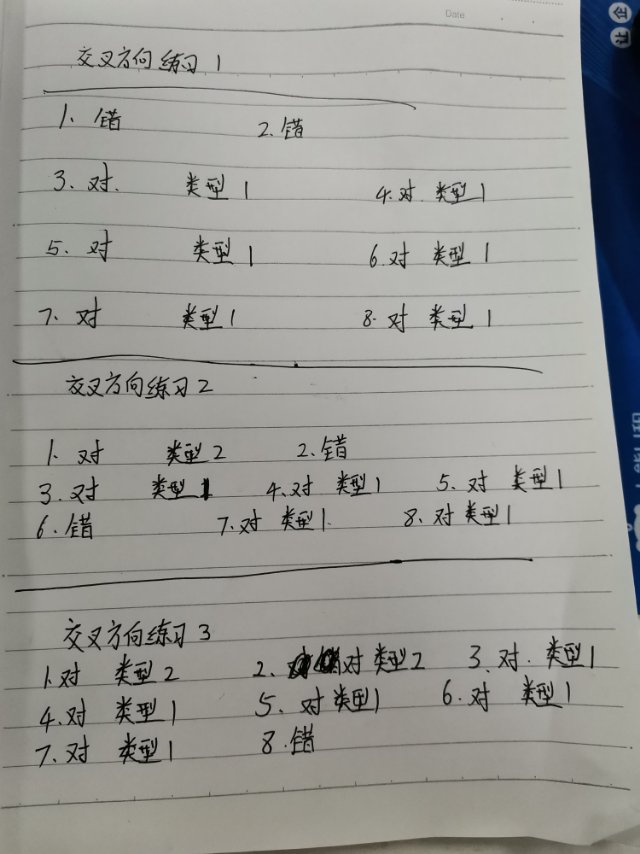 Date
让企
交叉方向练习1
1、错 2.错
3.对. 类型1 4.对.类型1
5.对 类型1 6.对 类型1
7.对 类型1 8.对 类型1
交叉方向练习2
1.对 类型2 2.错
3.对 类型1 4.对 类型1 5.对 类型1
6.错 7.对 类型1. 8.对 类型1
交叉方向练习3
1.对 类型2 2.对 类型2 3.对.类型1
4.对 类型1 5.对 类型1 6.对 类型1
7.对 类型1 8.错